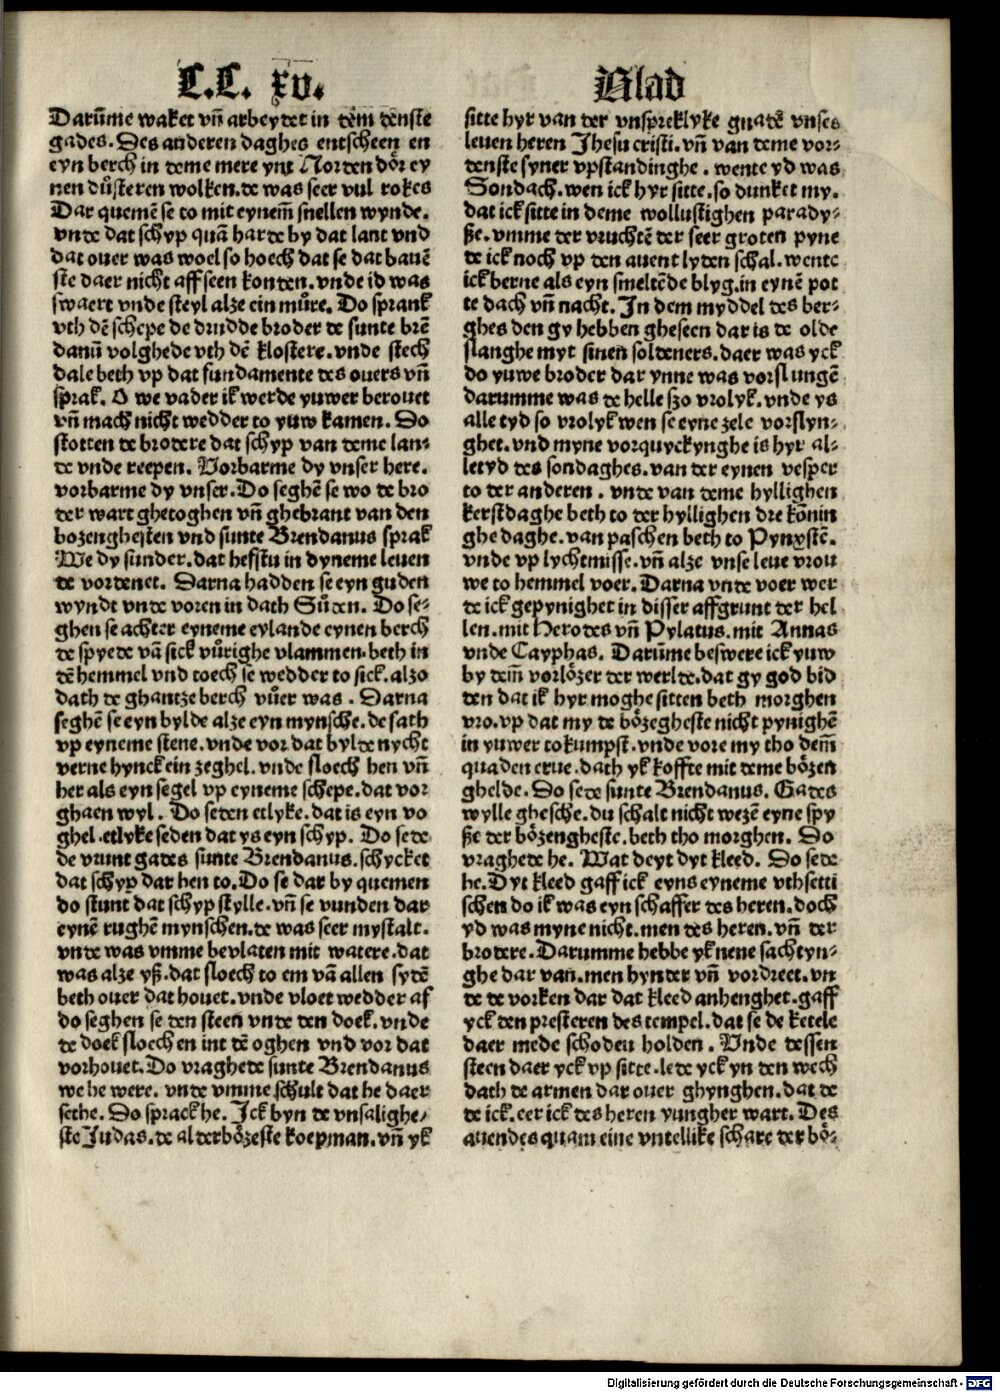 C.C. xv. Blad
Darūme waket vñ arbeydet in dem denste
gades. Des anderen daghes entscheen en
eyn berch in deme mere ynt Norden dör ey
nen düsteren wolken. de was seer vul rokes
Dar quemē se to mit eynem̄ snellen wynde.
vnde dat schyp quā harde by dat lant vnd
dat ouer was woel so hoech dat se dat bauē
ste daer nicht aff seen konden. vnde id was
swaert vnde steyl alze ein mūre. Do sprank
vth dē schepe de drudde broder de sunte brē
danū volghede vth dē klostere. vnde stech
dale beth vp dat fundamente des ouers vñ
sprak. O we vader ik werde yuwer berouet
vñ mach nicht wedder to yuw kamen. Do
stotten de brodere dat schyp van deme lan⸗
de vnde reepen. Vorbarme dy vnser here.
vorbarme dy vnser. Do seghē se wo de bro
der wart ghetoghen vñ ghebrant van den
bozengheysten vnd sunte Brendanus sprak
We dy sunder. dat hefstu in dyneme leuen
de vordenet. Darna hadden se eyn guden
wyndt vnde voren in dath Süden. Do se⸗
ghen se achter eyneme eylande eynen berch
de spyede vā sick vürighe vlammen. beth in
dē hemmel vnd toech se wedder to sick. alzo
dath de ghantze berch vüer was. Darna
seghē se eyn bylde alze eyn mynsche. de sath
vp eyneme stene. vnde vor dat bylde nycht
verne hynck ein zeghel. vnde sloech hen vñ
her als eyn segel vp eyneme schepe. dat vor
ghaen wyl. Do seden etlyke. dat is eyn vo
ghel. etlyke seden dat ys eyn schyp. Do sede
de vrunt gades sunte Brendanus. schycket
dat schyp dar hen to. Do se dar by quemen
do stunt dat schyp stylle. vñ se vunden dar
eynē rughē mynschen. de was seer mystalt.
vnde was vmme bevlaten mit watere. dat
was alze yß. dat sloech to em vā allen sydē
beth ouer dat houet. vnde vloet wedder af
do seghen se den steen vnde den doek. vnde
de doek sloech en int dē oghen vnd vor dat
vorhouet. Do vraghede sunte Brendanus
we he were. vnde vmme schult dat he daer
sethe. Do sprack he. Ick byn de vnsalighe⸗
ste Judas. de alderbözeste koepman. vñ yk
sitte hyr van der vnspreklyke gnadē vnses
leuen heren Jhesu cristi. vñ van deme vor⸗
denste syner vpstandinghe. wente yd was
Sondach. wen ick hyr sitte. so dunket my.
dat ick sitte in deme wollustighen parady⸗
ße. vmme der vruchtē der seer groten pyne
de ick noch vp den auent lyden schal. wente
ick berne als eyn smeltēde blyg. in eynē pot
te dach vñ nacht. In dem myddel des ber⸗
ghes den gy hebben gheseen dar is de olde
slanghe myt sinen soldeners. daer was yck
do yuwe broder dar ynne was vorslungē
darumme was de helle szo vrolyk. vnde ys
alle tyd so vrolyk wen se eyne zele vorslyn⸗
ghet. vnd myne vorquyckynghe is hyr al⸗
letyd des sondaghes. van der eynen vesper
to der anderen. vnde van deme hyllighen
kerstdaghe beth to der hyllighen dre könin
ghe daghe. van paschen beth to Pynxstē.
vnde vp lychtmisse. vñ alze vnse leue vrou
we to hemmel voer. Darna vnde voer wer
de ick gepynighet in disser affgrunt der hel
len. mit Herodes vñ Pylatus. mit Annas
vnde Cayphas. Darūme beswere ick yuw
by dem̄ vorlözer der werlde. dat gy god bid
den dat ik hyr moghe sitten beth morghen
vro. vp dat my de bözegheste nicht pynighē
in yuwer tokumpst. vnde vore my tho dem̄
quaden erue. dath yk koffte mit deme bözen
ghelde. Do sede sunte Brendanus. Gades
wylle ghesche. du schalt nicht wezē eyne spy
ße der bözengheste. beth tho morghen. Do
vraghede he. Wat deyt dyt kleed. Do sede
he. Dyt kleed gaff ick eyns eyneme vthsetti
schen do ik was eyn schaffer des heren. doch
yd was myne nicht. men des heren. vñ der
brodere. Darumme hebbe yk nene sachtyn⸗
ghe dar van. men hynder vñ vordreet. vn
de de vorken dar dat kleed anhenghet. gaff
yck den presteren des tempel. dat se de ketele
daer mede schoden holden. Vnde dessen
steen daer yck vp sitte. lede yck yn den wech
dath de armen dar ouer ghynghen. dat de
de ick. eer ick des heren yungher wart. Des
auendes quam eine vntellike schare der bö⸗
Digitalisierung gefördert durch die Deutsche Forschungsgemeinschaft - DFG